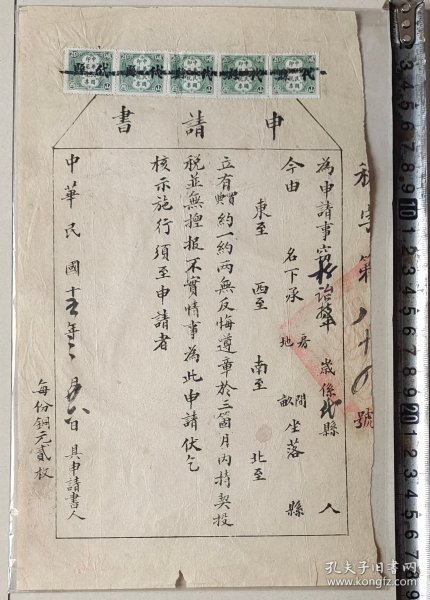 申請書
字第八十四號
為申請事
歲係代縣人
今由 名下承 房間 地畝 坐落 縣
東至 西至 南至 北至
立有賣約一約兩無反悔遵章於三箇月內持契投
稅並無揑报不實情事為此申請伏乞
核示施行須至申請者
中華民國十五年 月 日具申請書人
每份銅元貳枚
孔夫子旧书网
www.kongfz.com